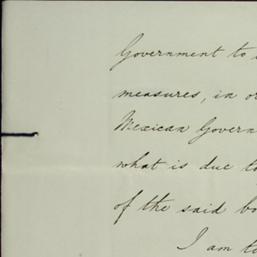 Government to
measures, in or
Mexican Govern
what is due to
of the said bo
I am to